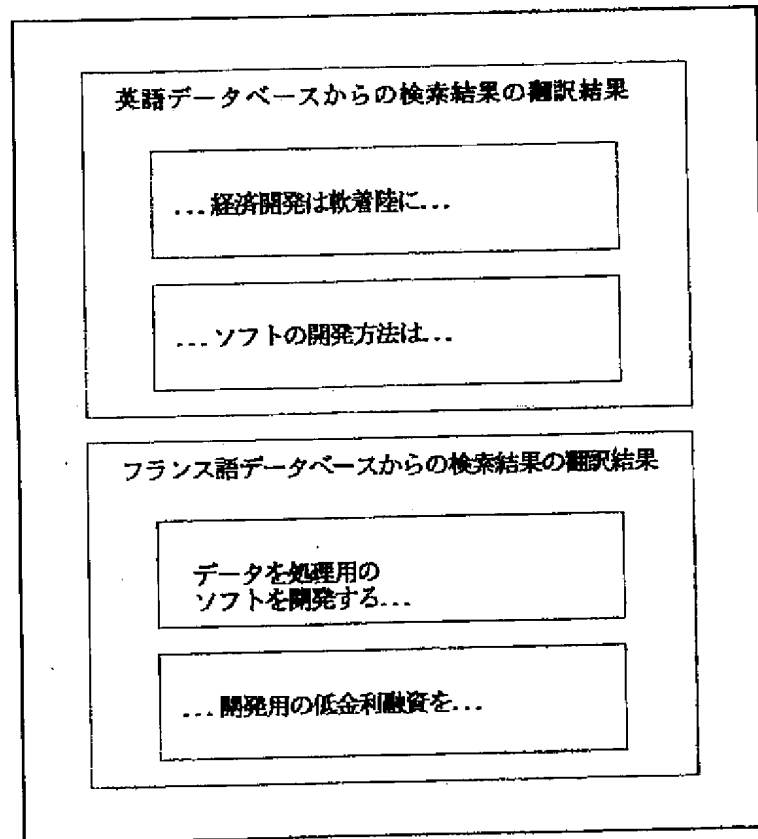 英語データベースからの検索結果の翻訳結果
...経済開発は軟着陸に...
...ソフトの開発方法は...
フランス語データベースからの検索結果の翻訳結果
データを処理用の
ソフトを開発する...
...開発用の低金利融資を...